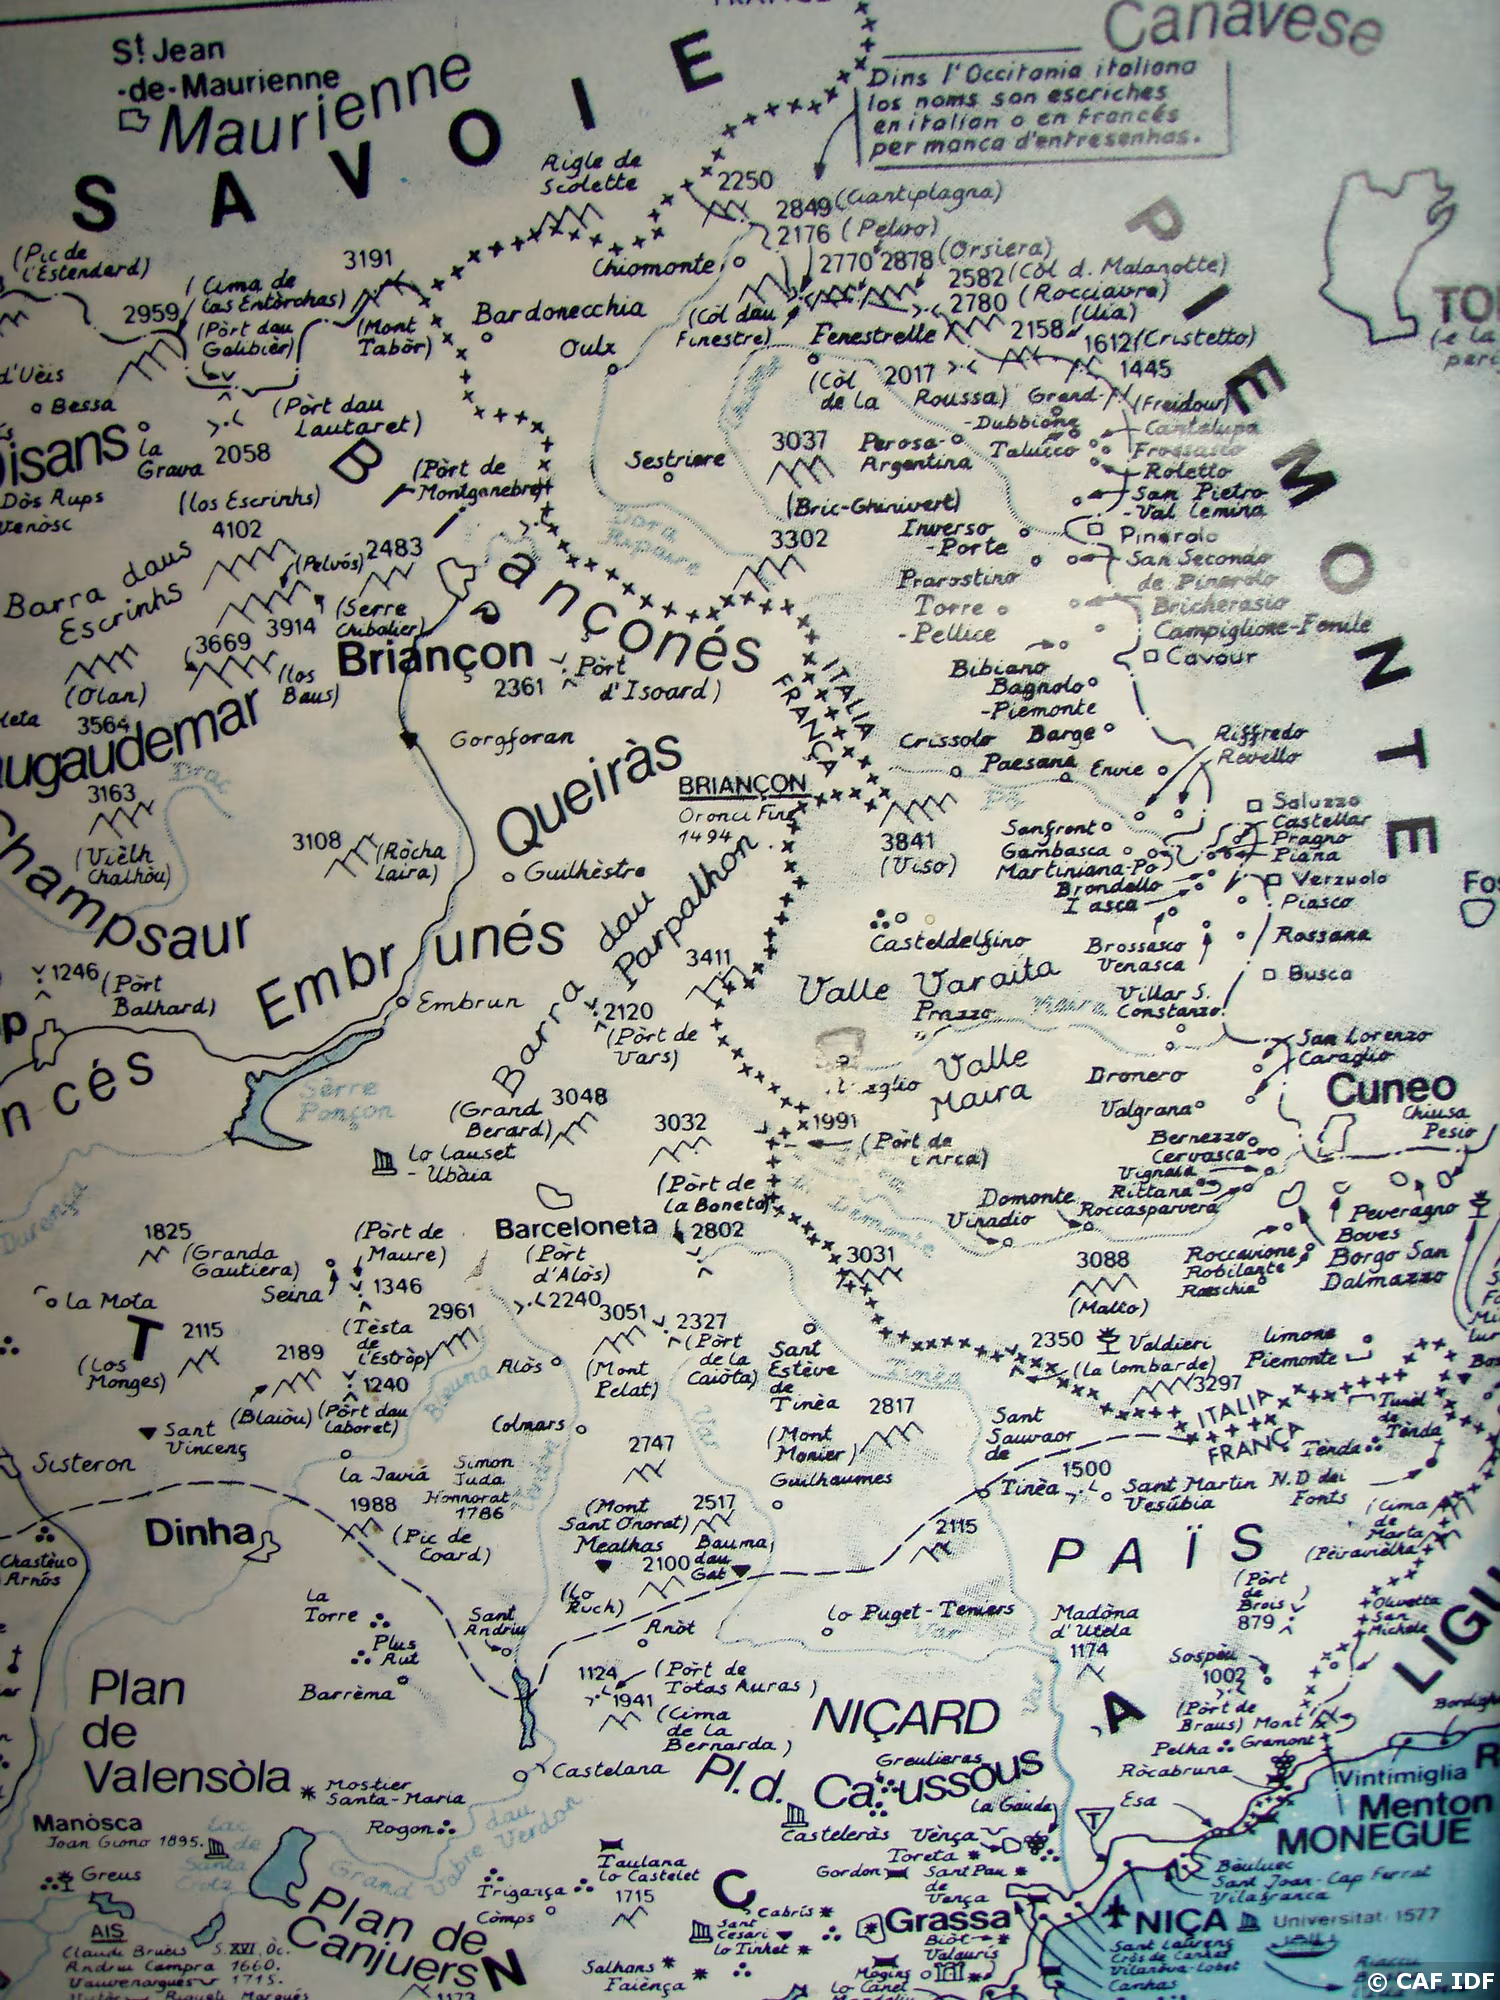 Canavese
St Jean
-de-Maurienne
Maurienne
SAVOIE
Dins l'Occitania italiana
los noms son escriches
en italian o en francés
per manca d'entresenhas.
Aigle de
Scolette
2250
2849 (Ciantiplagna)
2176 (Pelvo)
2770 2878 (Orsiera)
2582 (Còl d. Malanotte)
2780 (Rocciavre)
(Uia)
2158
1612 (Cristetto)
1445
(Freidour)
PIEMONTE
(Pic de
l'Estendard)
3191
(Cima de
las Entòrchas)
2959
(Pòrt dau
Galibièr)
(Mont
Tabòr)
Chiomonte
Bardonecchia
Oulx
(Còl dau
Finestre)
Fenestrelle
(Còl
de la
Roussa)
2017
Grand-
-Dubbione
Talucco
Cantalupa
Frossasco
Roletto
San Pietro
-Val Lemina
Pinerolo
San Secondo
de Pinerolo
Bricherasio
Campiglione-Fenile
Cavour
d'Uèis
Bessa
la
Grava
2058
(Pòrt dau
Lautaret)
(Pòrt de
Montgenebre)
Sestriere
3037
Perosa-
Argentina
(Bric-Ghinivert)
Inverso
-Porte
Dòs Aups
Venòsc
(los Escrinhs)
4102
Barra daus
Escrinhs
(Pelvós)
2483
(Serre
Chibalier)
3914
3669
(los
Baus)
(Olan)
3564
Briançonés
Briançon
2361
Pòrt
d'Isoard)
Dora
Riparia
3302
Prarostino
Torre
-Pellice
Bibiano
Bagnolo
-Piemonte
ITALIA
FRANÇA
Crissolo
Barge
Paesana
Envie
Riffredo
Revello
Drac
3163
(Vièlh
Chalhòu)
Champsaur
Gorgforan
Queiràs
BRIANÇON
Oronci Fine
1494
3108
(Ròcha
Laira)
Guilhèstre
3841
(Viso)
Sanfront
Gambasca
Martiniana-Po
Brondello
Saluzzo
Castellar
Pragno
Piana
Verzuolo
Piasco
Rossana
Busca
Casteldelfino
Brossasco
Venasca
Embrunés
Barra dau Parpalhon
1246
(Pòrt
Balhard)
Embrun
3411
2120
(Pòrt de
Vars)
Valle Varaita
Prazzo
Maira
Villar S.
Constanzo
San Lorenzo
Caraglio
Valle
Maira
Dronero
Valgrana
Cuneo
Chiusa
Pesio
Sèrre
Ponçon
Durença
3048
(Grand
Berard)
3032
1991
lo Lauset
-Ubàia
(Pòrt de
la Boneta)
Bernezzo
Cervasca
Vignolo
Rittana
Roccasparvera
Demonte
Vinadio
Peveragno
Boves
Borgo San
Dalmazzo
Roccavione
Robilante
Roaschia
Barceloneta
2802
(Pòrt
d'Alòs)
1825
(Granda
Gautiera)
(Pòrt de
Maure)
Seina
1346
La Mota
2240
2961
3051
2327
3031
3088
(Malto)
2115
(Los
Monges)
2189
(Tèsta
de
l'Estròp)
(Blaiòu)
1240
(Pòrt dau
Laboret)
Alòs
(Mont
Pelat)
(Pòrt
de la
Caiòta)
Sant
Estève
de
Tinèa
Tinèa
2350
Valdieri
(la lombarde)
Limone
Piemonte
3297
ITALIA
FRANÇA
Tunèl
de
Tènda
Tènda
Sant
Vincenç
Sisteron
Colmars
2747
2817
(Mont
Monier)
Sant
Sauvaor
de
Tinèa
1500
Sant Martin
Vesúbia
N.D dei
Fonts
la Javiá
Simon
Juda
Honnorat
1786
Guilhaumes
1988
(Pic de
Coard)
Dinha
(Mont
Sant Onorat)
2517
Mealhas
Bauma
dau
Gat
2100
(Lo
Ruch)
2115
PAÏS
(Cima
de
Marta
(Peiravièlha)
(Pòrt
de
Brois)
879
Olivetta
San
Michele
LIGU
Chastèuo
Arnòs
La
Torre
Plus
Aut
Barrèma
Sant
Andriu
Anòt
lo Puget-Teniers
Var
Madòna
d'Utèla
1174
Sospèu
1002
(Pòrt de
Braus)
Mont
Gramont
Pelha
Ròcabruna
1124
(Pòrt de
Totas Auras)
1941
(Cima
de la
Bernarda)
NIÇARD
Plan
de
Valensòla
Mostier
Santa-Maria
Castelana
Pl.d. Caussòus
Greulieras
La Gauda
Esa
Vintimiglia
Menton
MONEGUE
Manòsca
Joan Giono 1895.
Lac
de
Santa
Crotz
Rogon
Grand Vabre dau Verdon
Casteleràs
Vença
Toreta
Gordon
Sant Pau
de
Vença
Bèuluec
Sant Joan-Cap Ferrat
Vilafranca
Greus
Trigança
Còmps
Taulana
lo Castelet
1715
Plan de
Canjuers
Cabris
Sant
Cesari
lo Tinhet
Grassa
Biòt
Valauris
Mogins
lo Canet
NIÇA
Universitat 1577
Sant Laurenç
Cròs de Canhas
Vilanòva-Lobet
Canhas
AIS
Claudi Bruèis S.XVI Òc.
Andriu Campra 1660.
Vauvenargues 1715.
Salhans
Faiènça
© CAF IDF